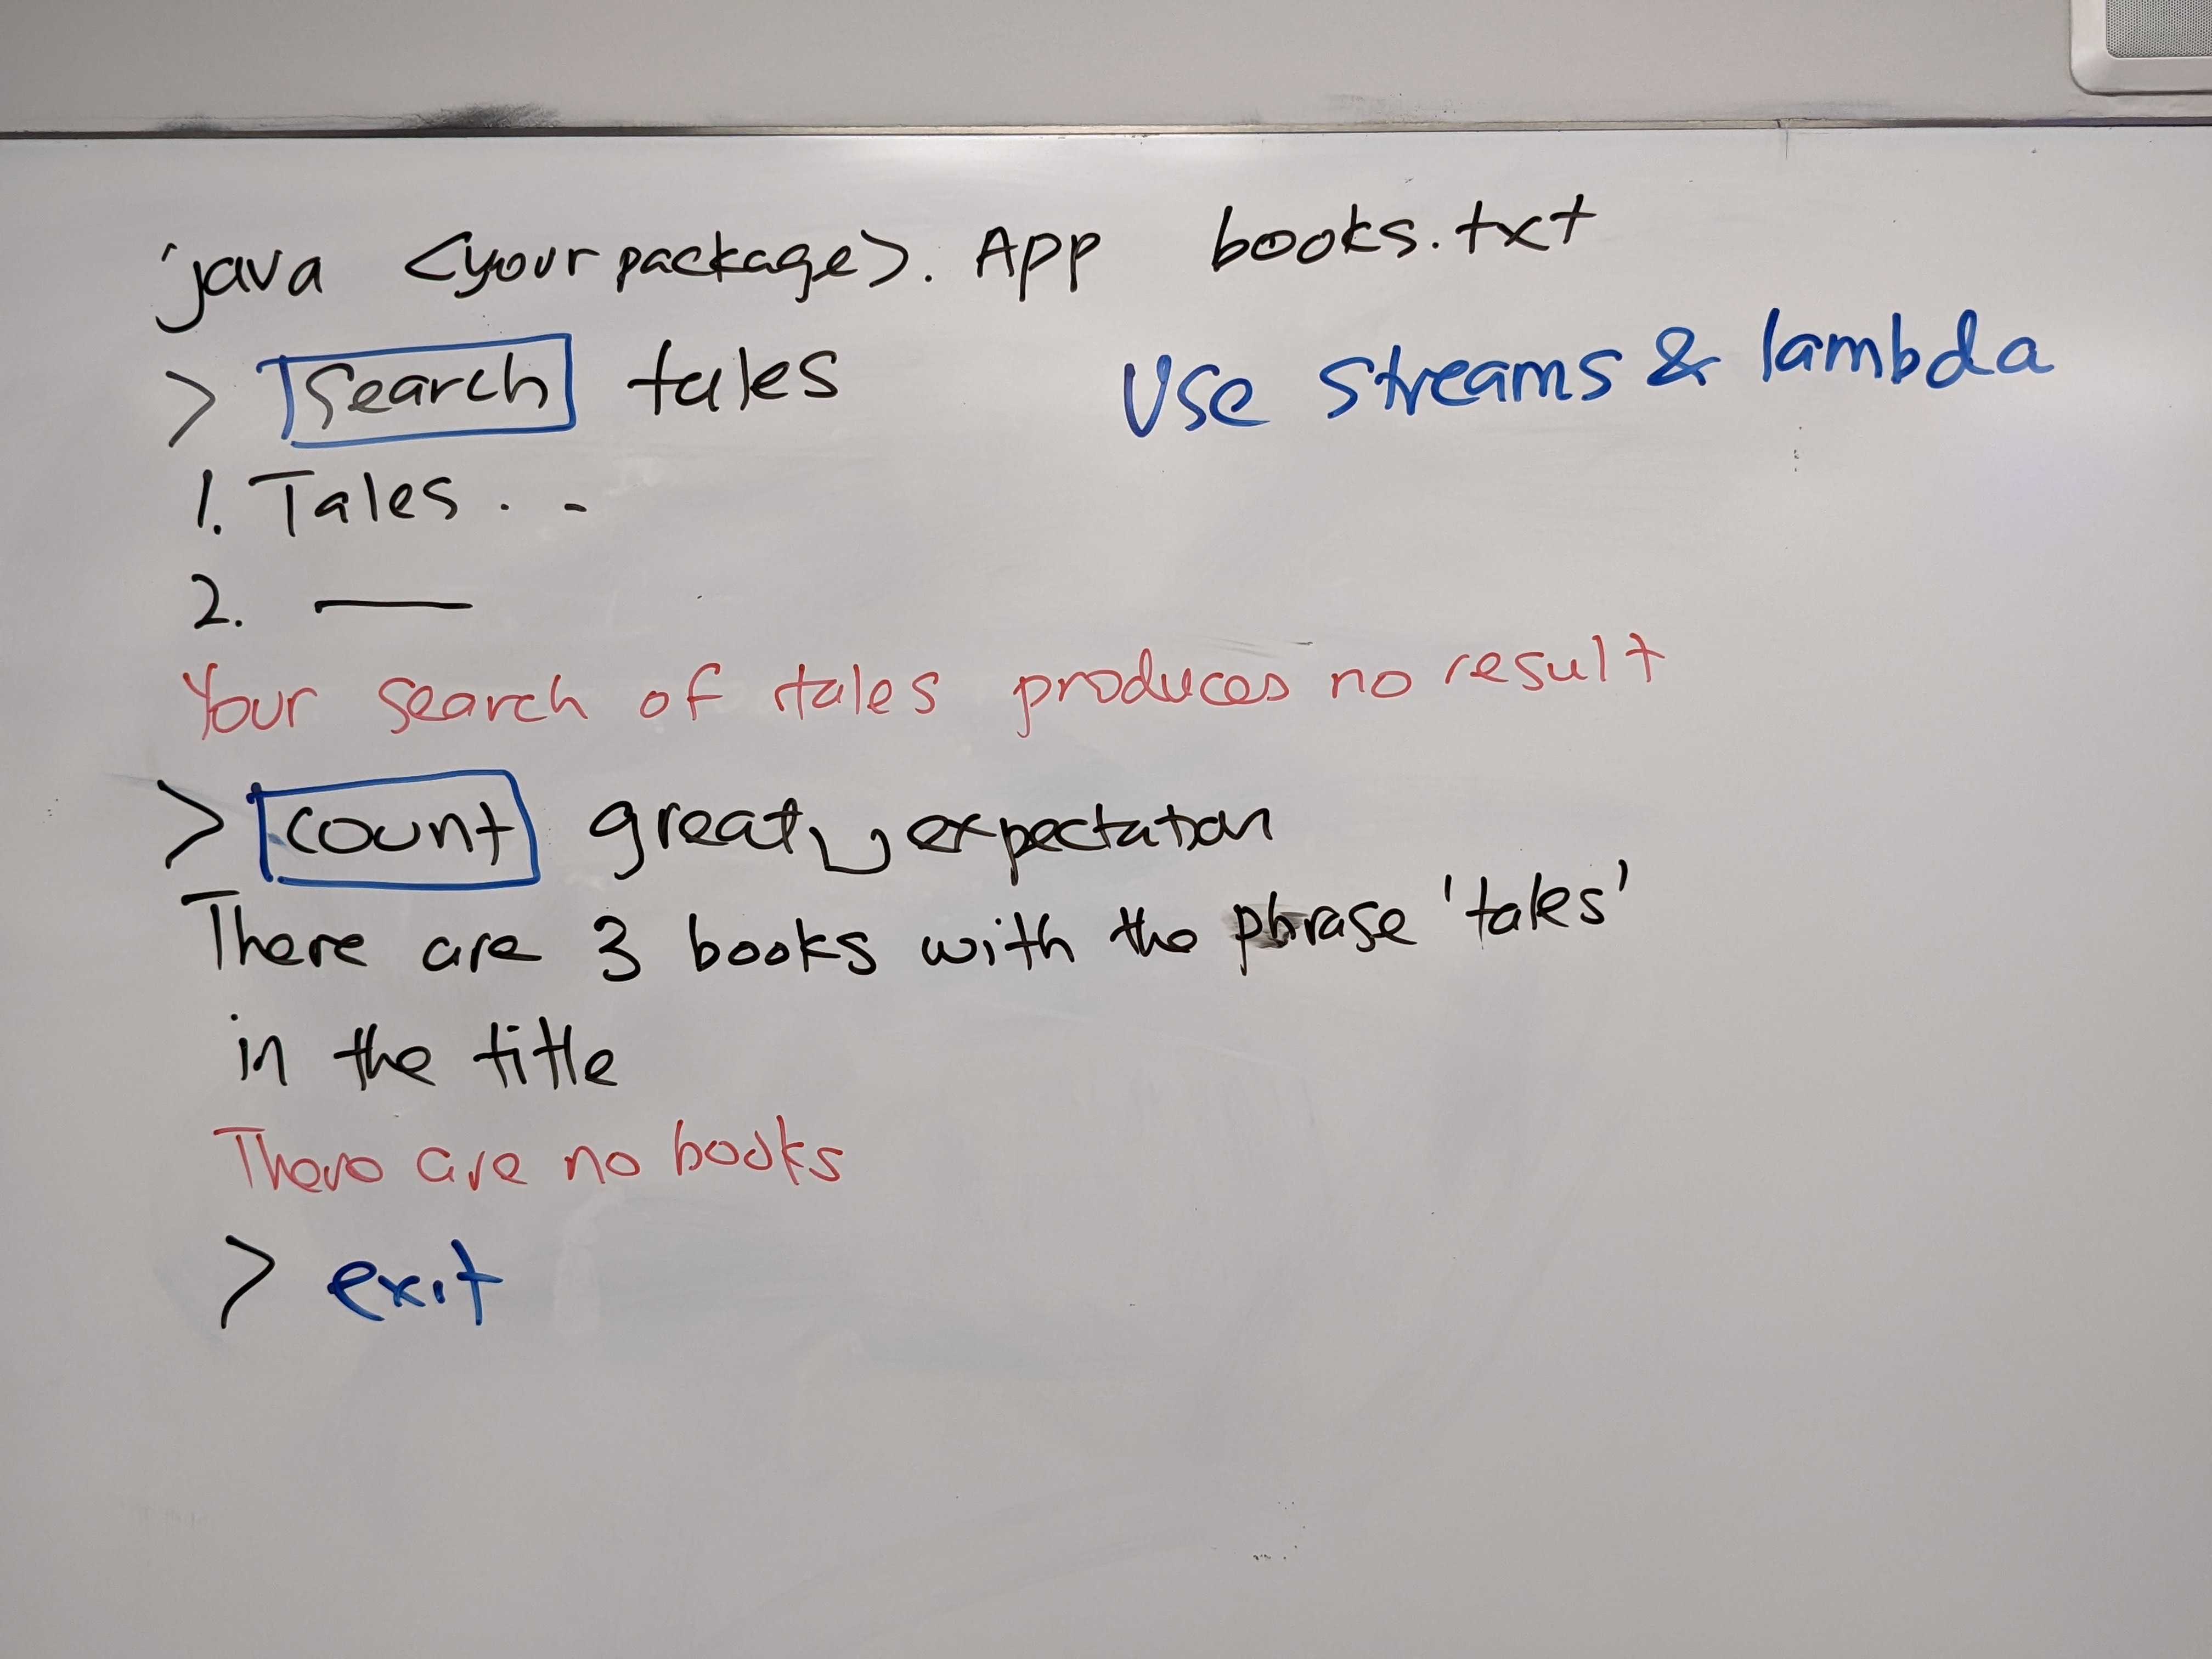 java <yourpackage>. App books.txt
> Search tales
Use streams & lambda
1. Tales . . 
2. —
Your search of tales produces no result
> count great␣expectation
There are 3 books with the phrase 'tales'
in the title
There are no books
> exit